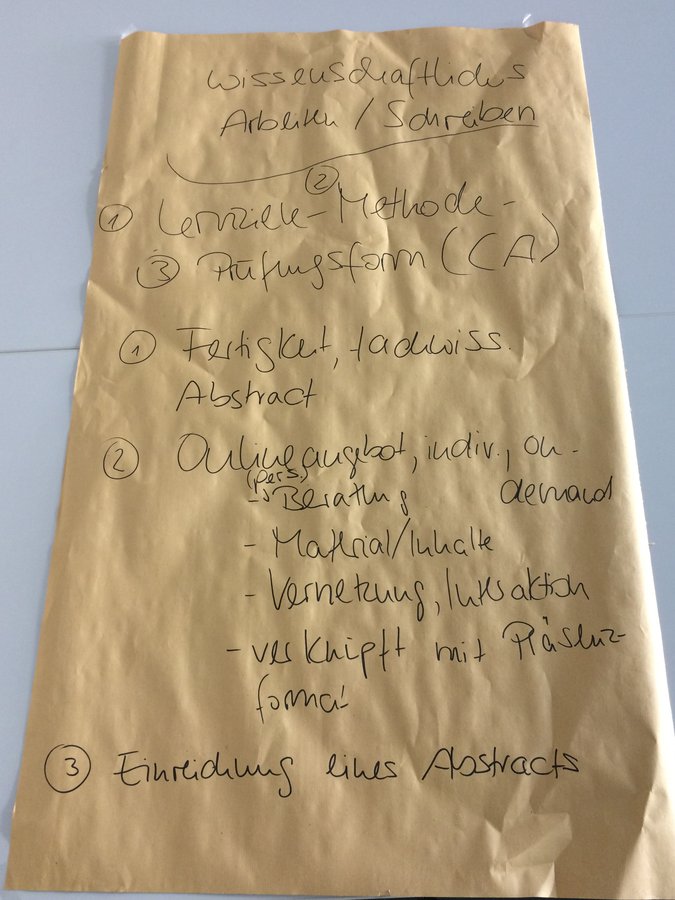 Wissenschaftliches
Arbeiten / Schreiben
① Lernziele - ② Methode -
③ Prüfungsform (CA)
① Fertigkeit, fachwiss.
Abstract
② Onlineangebot, indiv., on-
demand
- (pers.) Beratung
- Material/Inhalte
- Vernetzung, Interaktion
- verknüpft mit Präsenz-
format
③ Einreichung eines Abstracts